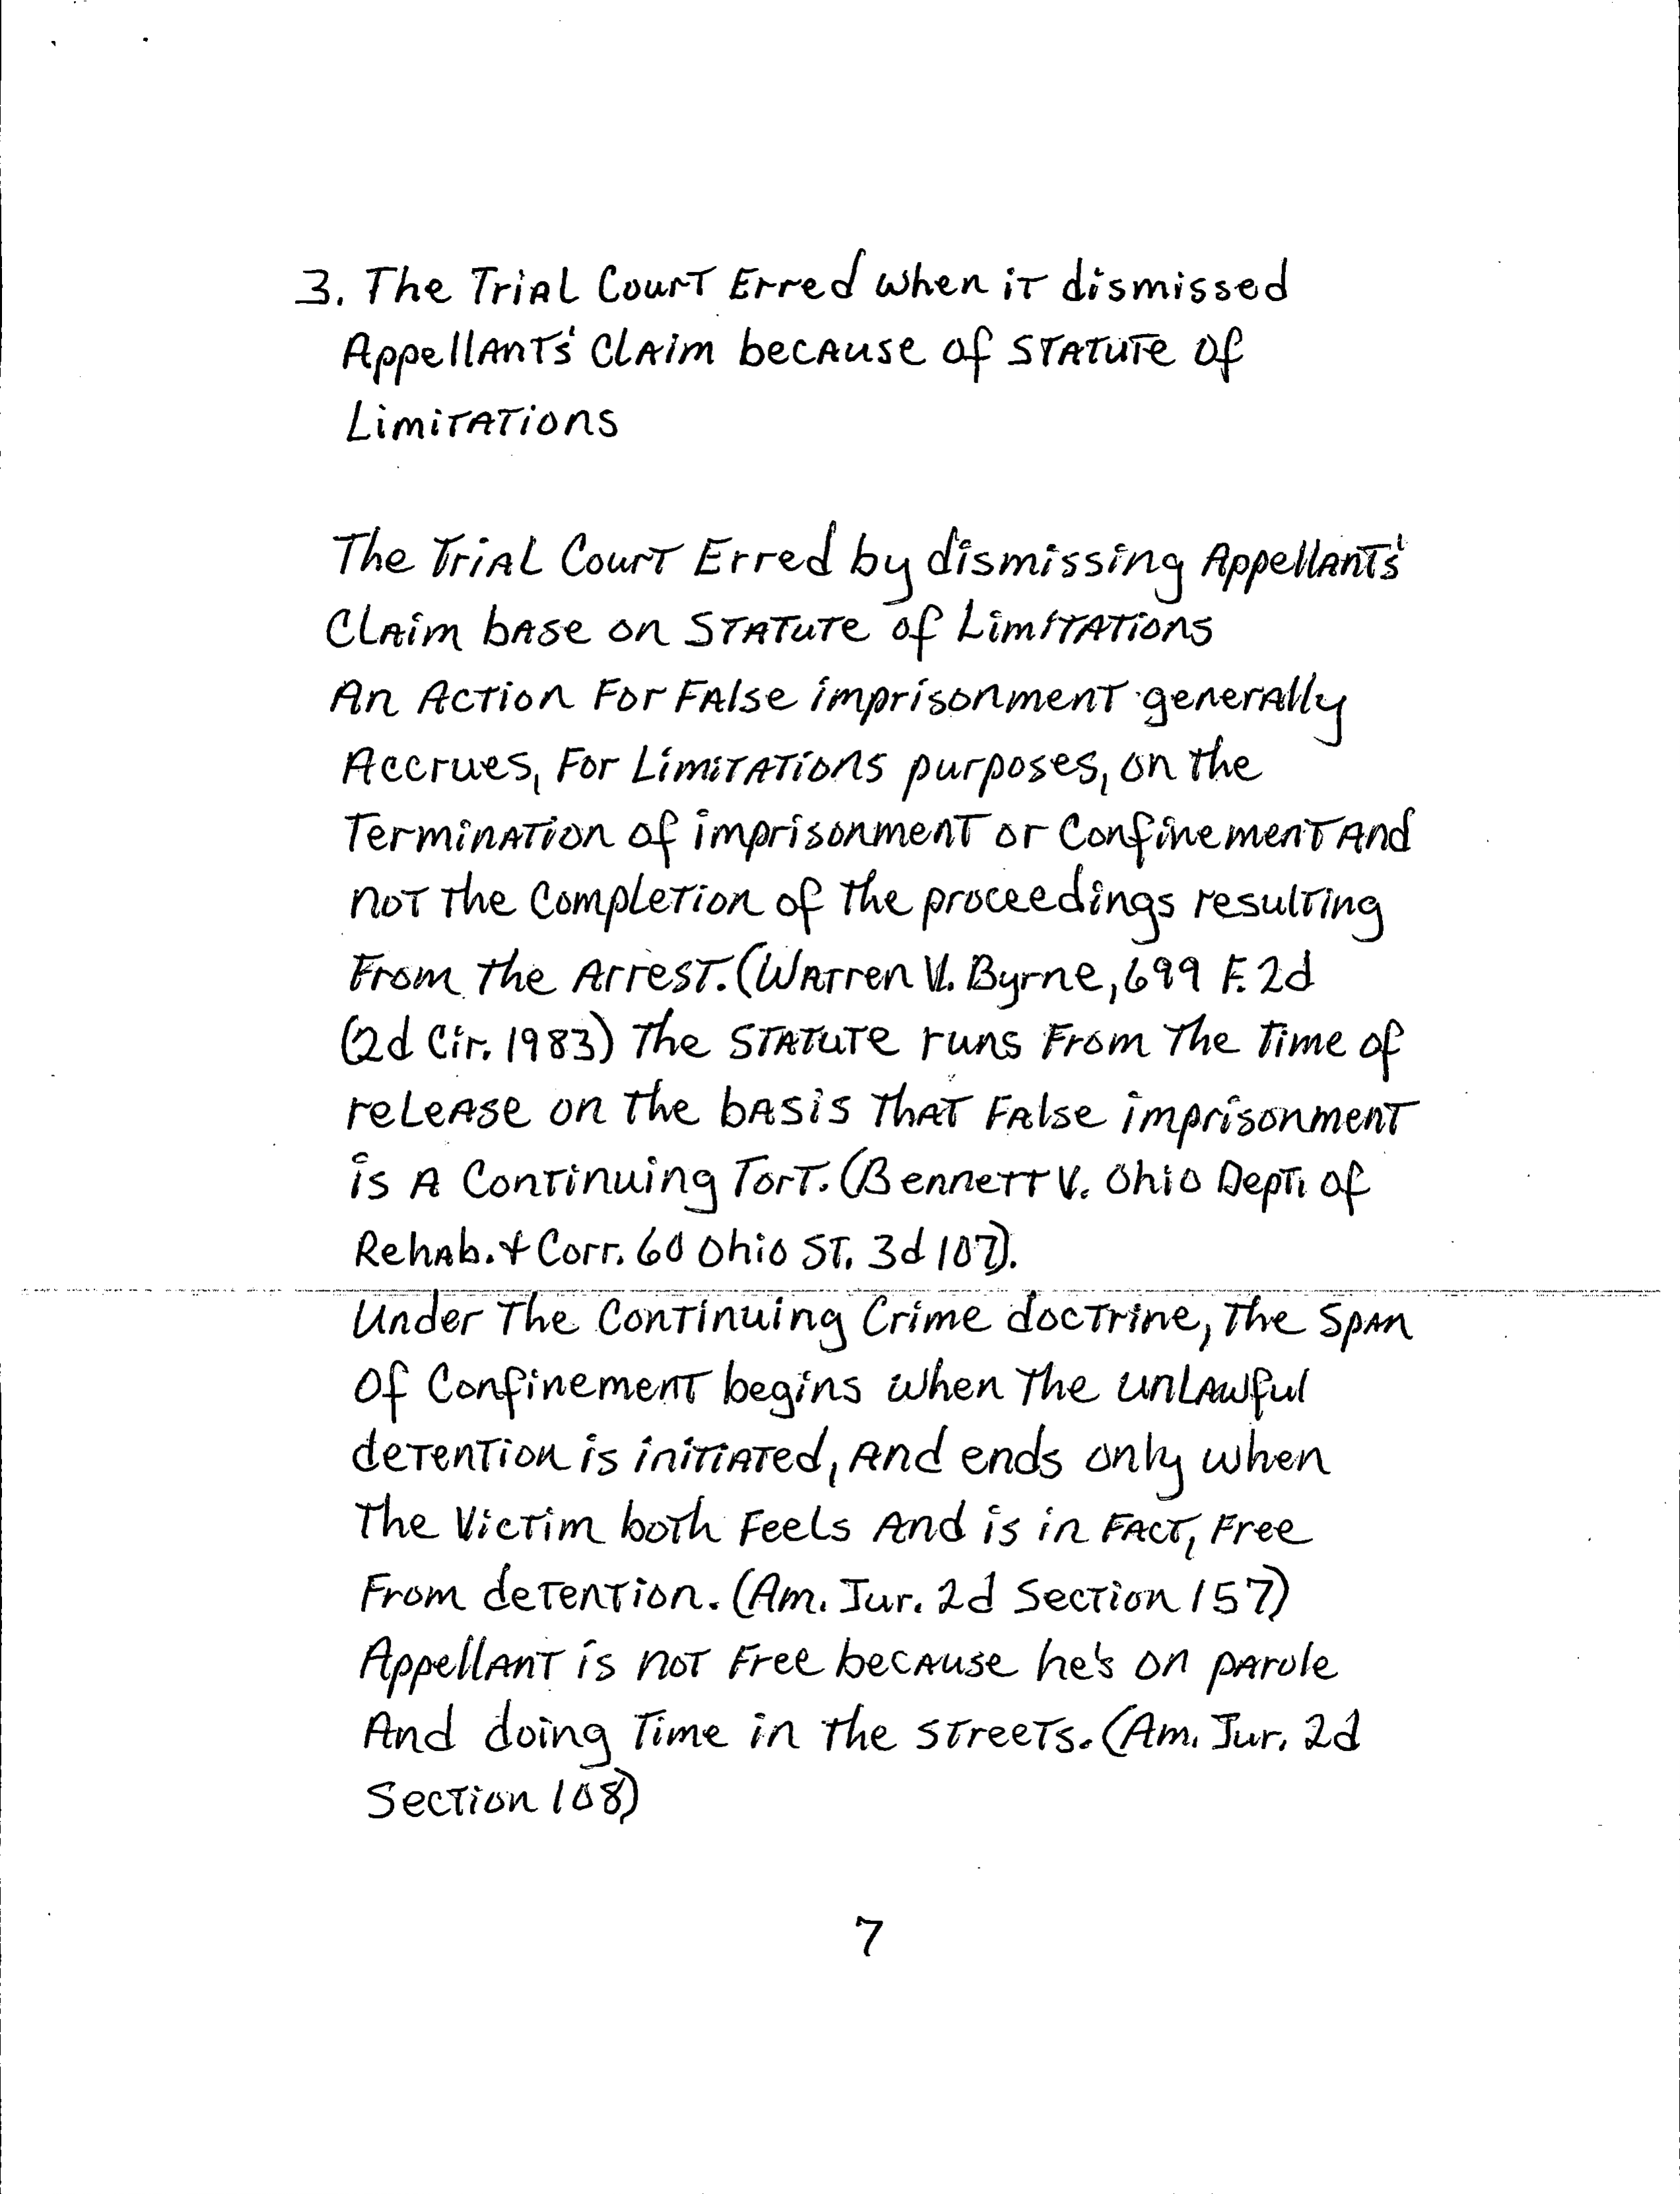 3. The Trial Court Erred when it dismissed
Appellants' Claim because of Statute of
Limitations
The Trial Court Erred by dismissing Appellants'
Claim base on Statute of Limitations
An Action For False imprisonment generally
Accrues, For Limitations purposes, on the
Termination of imprisonment or Confinement And
not the Completion of the proceedings resulting
From the Arrest. (Warren V. Byrne, 699 F. 2d
(2d Cir. 1983) The Statute runs From The Time of
release on the basis That False imprisonment
is A Continuing Tort. (Bennett V. Ohio Dept. of
Rehab. & Corr. 60 Ohio St. 3d 107).
Under The Continuing Crime doctrine, The Span
Of Confinement begins when The unlawful
detention is initiated, And ends only when
The Victim both Feels And is in Fact, Free
From detention. (Am. Jur. 2d Section 157)
Appellant is not Free because he's on parole
And doing Time in the streets. (Am. Jur. 2d
Section 108)
7